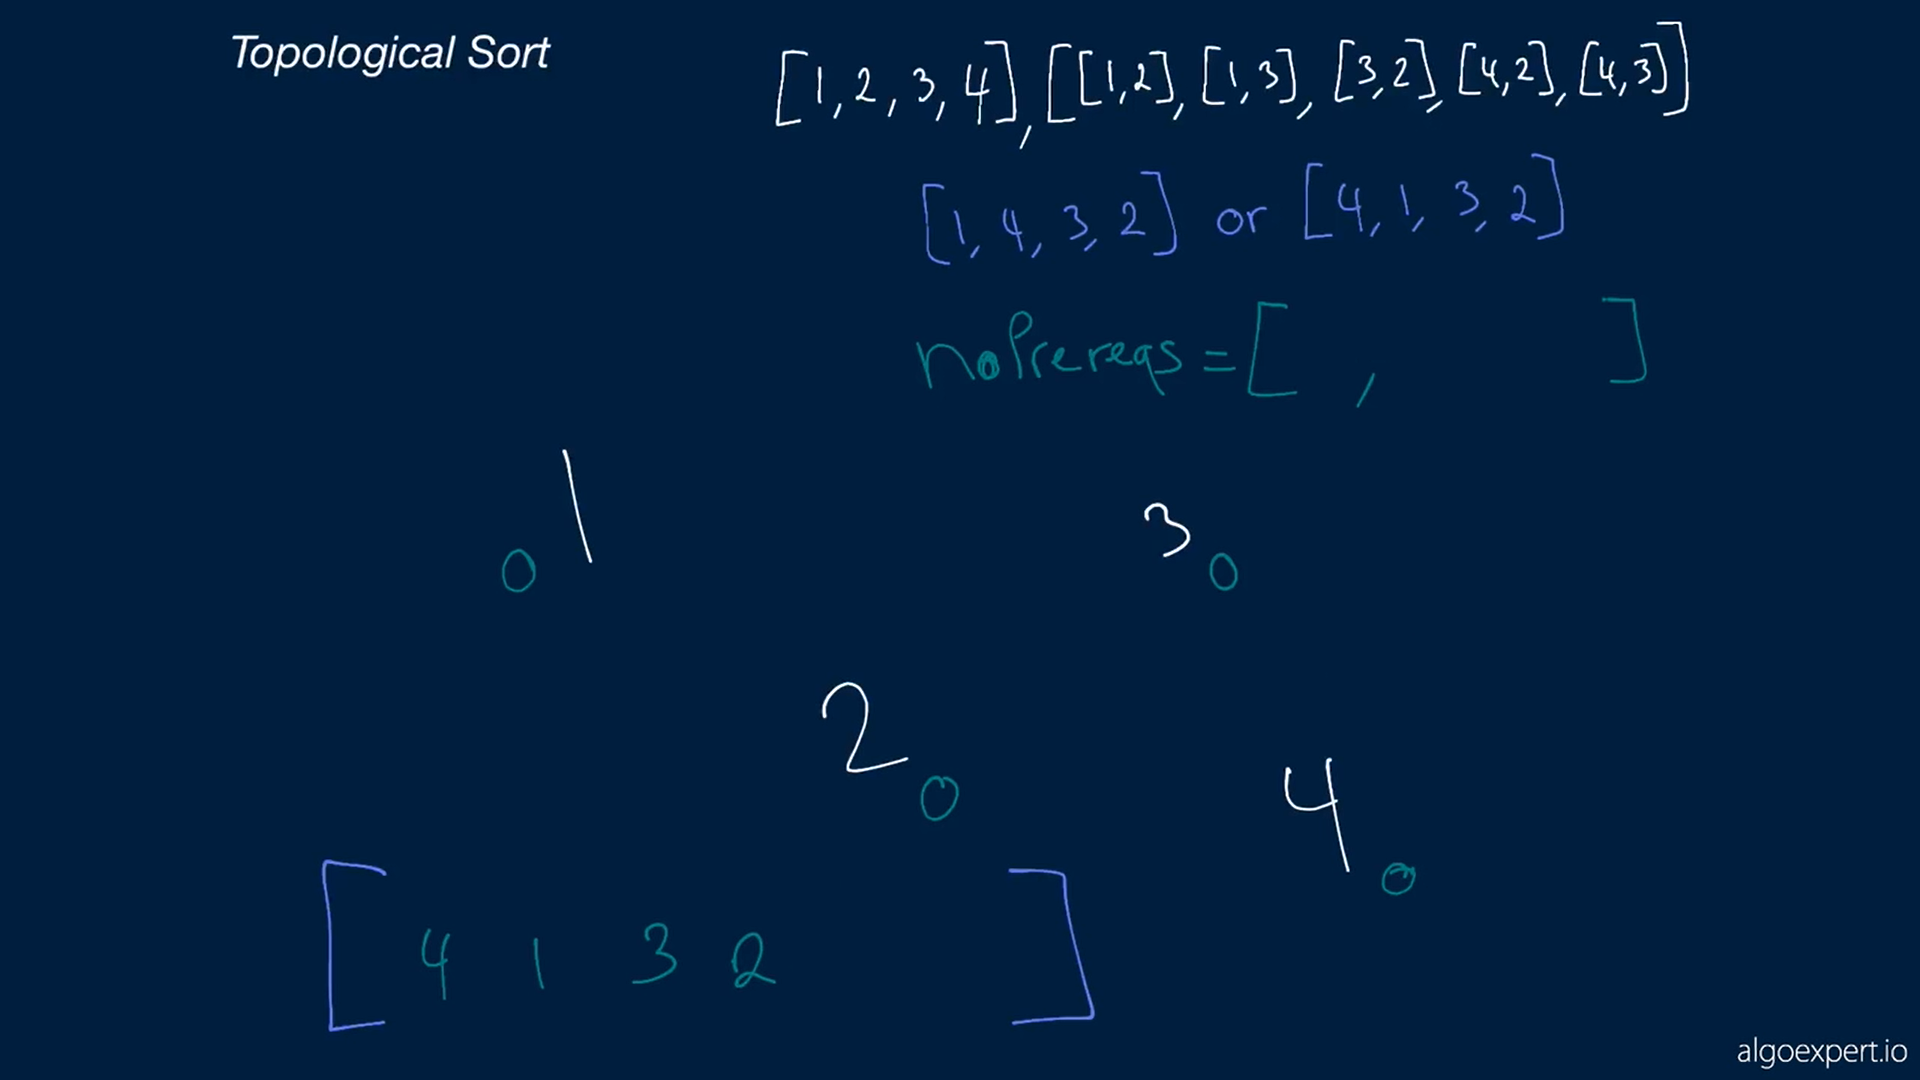 Topological Sort
[1, 2, 3, 4], [[1,2], [1,3], [3,2], [4,2], [4,3]]
[1, 4, 3, 2] or [4, 1, 3, 2]
noPrereqs = [ , ]
1 0
3 0
2 0
4 0
[ 4 1 3 2 ]
algoexpert.io